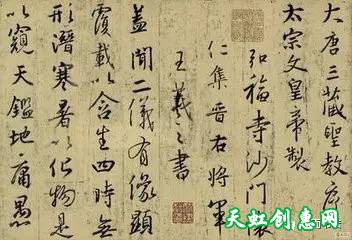 大唐三藏聖教序
太宗文皇帝製
弘福寺沙門懷
仁集晉右將軍
王羲之書
蓋聞二儀有像顯
覆載以含生四時無
形潛寒暑以化物是
以窺天鑑地庸愚
天虹创意网